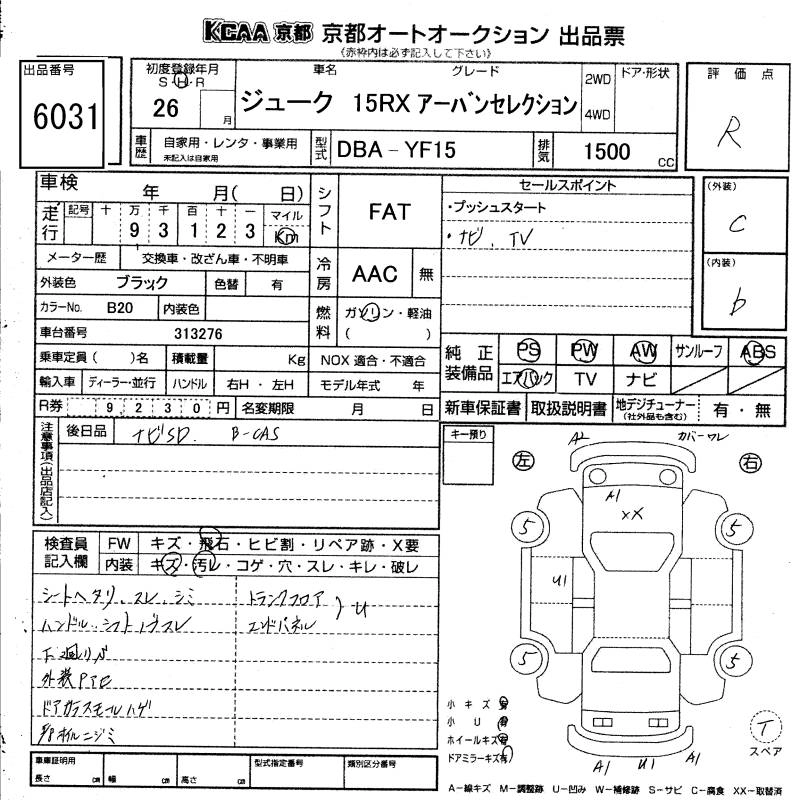 KCAA 京都 京都オートオークション 出品票
《赤枠内は必ず記入して下さい》
出品番号
6031
初度登録年月
S・H・R
26 月
車名 グレード
ジューク 15RX アーバンセレクション
2WD
4WD
ドア・形状
評価点
R
車歴
自家用・レンタ・事業用
未記入は自家用
型式
DBA-YF15
排気
1500 cc
車検 年 月( 日)
走行
記号 十 万 千 百 十 一
9 3 1 2 3
マイル
Km
シフト
FAT
セールスポイント
・プッシュスタート
・ナビ、TV
(外装)
C
(内装)
D
メーター歴 交換車・改ざん車・不明車
外装色 ブラック 色替 有
冷房
AAC 無
カラーNo. B20 内装色
燃料
ガソリン・軽油
( )
車台番号 313276
乗車定員( )名 積載量 Kg
NOX 適合・不適合
輸入車 ディーラー・並行 ハンドル 右H・左H モデル年式 年
R券 9,230円 名変期限 月 日
純正装備品
PS PW AW サンルーフ ABS
エアバック TV ナビ
新車保証書 取扱説明書 地デジチューナー
(社外品も含む)
有・無
注意事項(出品店記入)
後日品 ナビSD B-CAS
キー預り
A2
カバーワレ
左
右
A1
XX
5
5
U1
5
5
検査員記入欄
FW キズ・飛石・ヒビ割・リペア跡・X要
内装 キズ・汚レ・コゲ・穴・スレ・キレ・破レ
シートヘタリ、スレ、シミ
ハンドル、シフトノブスレ
下廻りサビ
外装PTC
ドアガラスモールハゲ
トランクフロア
エンドパネル
) U
小キズ 有
小U 有
ホイールキズ 有
ドアミラーキズ 有
A1 U1 A1
T
スペア
車庫証明用
長さ cm 幅 cm 高さ cm
型式指定番号
類別区分番号
A-線キズ M-調整跡 U-凹み W-補修跡 S-サビ C-腐食 XX-取替済